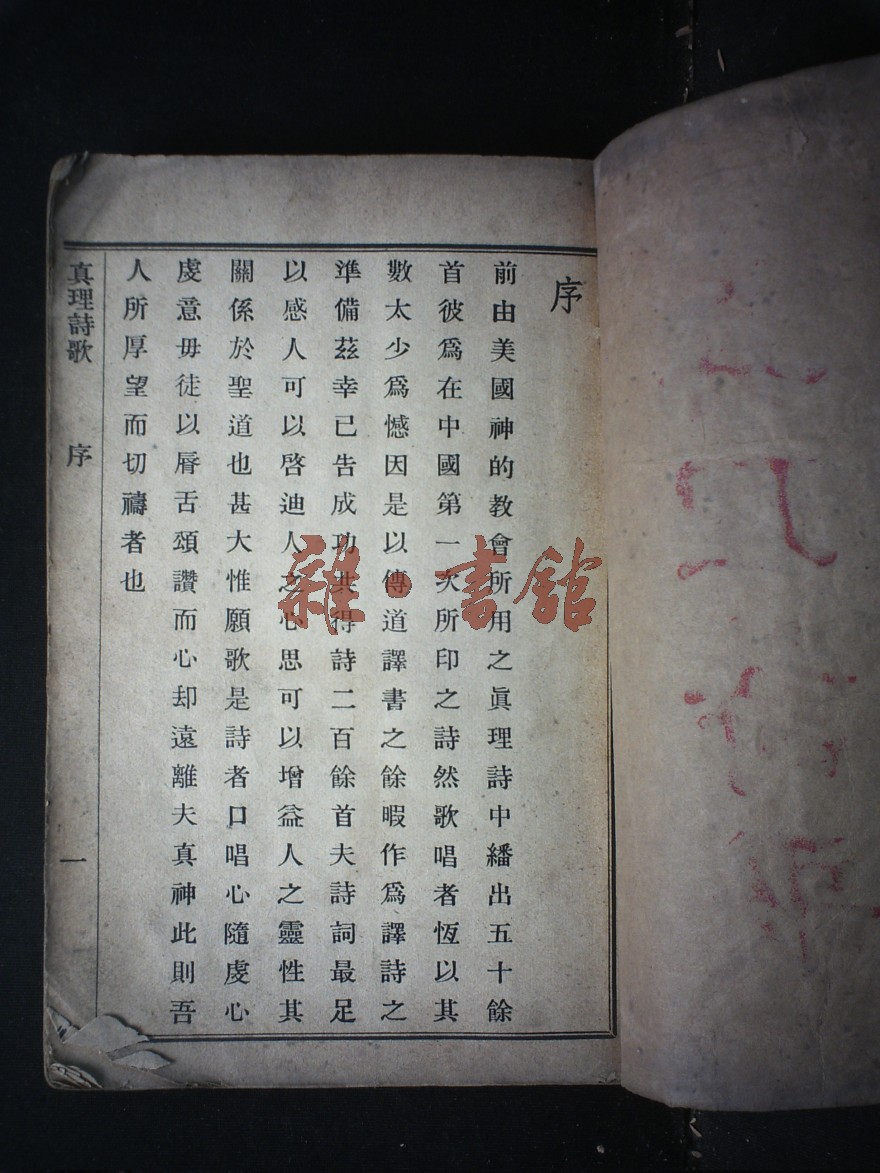 序
前由美國神的教會所用之眞理詩中繙出五十餘
首彼爲在中國第一次所印之詩然歌唱者恆以其
數太少爲憾因是以傳道譯書之餘暇作爲譯詩之
準備茲幸已告成功共得詩二百餘首夫詩詞最足
以感人可以啓迪人之心思可以增益人之靈性其
關係於聖道也甚大惟願歌是詩者口唱心隨虔心
虔意毋徒以唇舌頌讚而心却遠離夫真神此則吾
人所厚望而切禱者也
真理詩歌 序 一
雜·書館